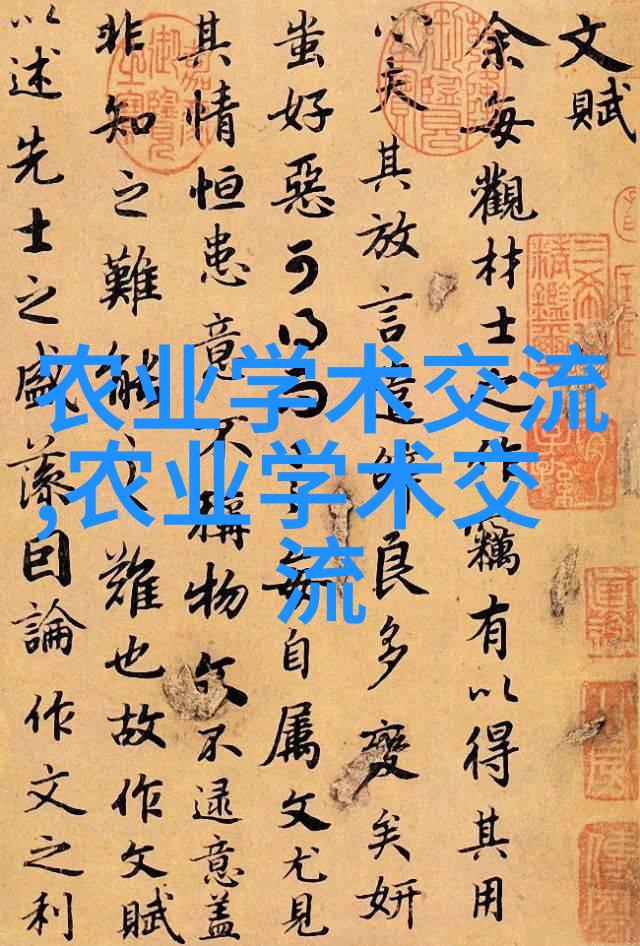 文賦
余每觀材士之作竊有以得其用
心夫其放言遣辭良多變矣妍
蚩好惡可得而言每自属文尤見
其情恒患意不稱物文不逮意盖
非知之難能之難也故作文賦
以述先士之盛藻因論作文之利
农业学术交流
,农业学术交
流